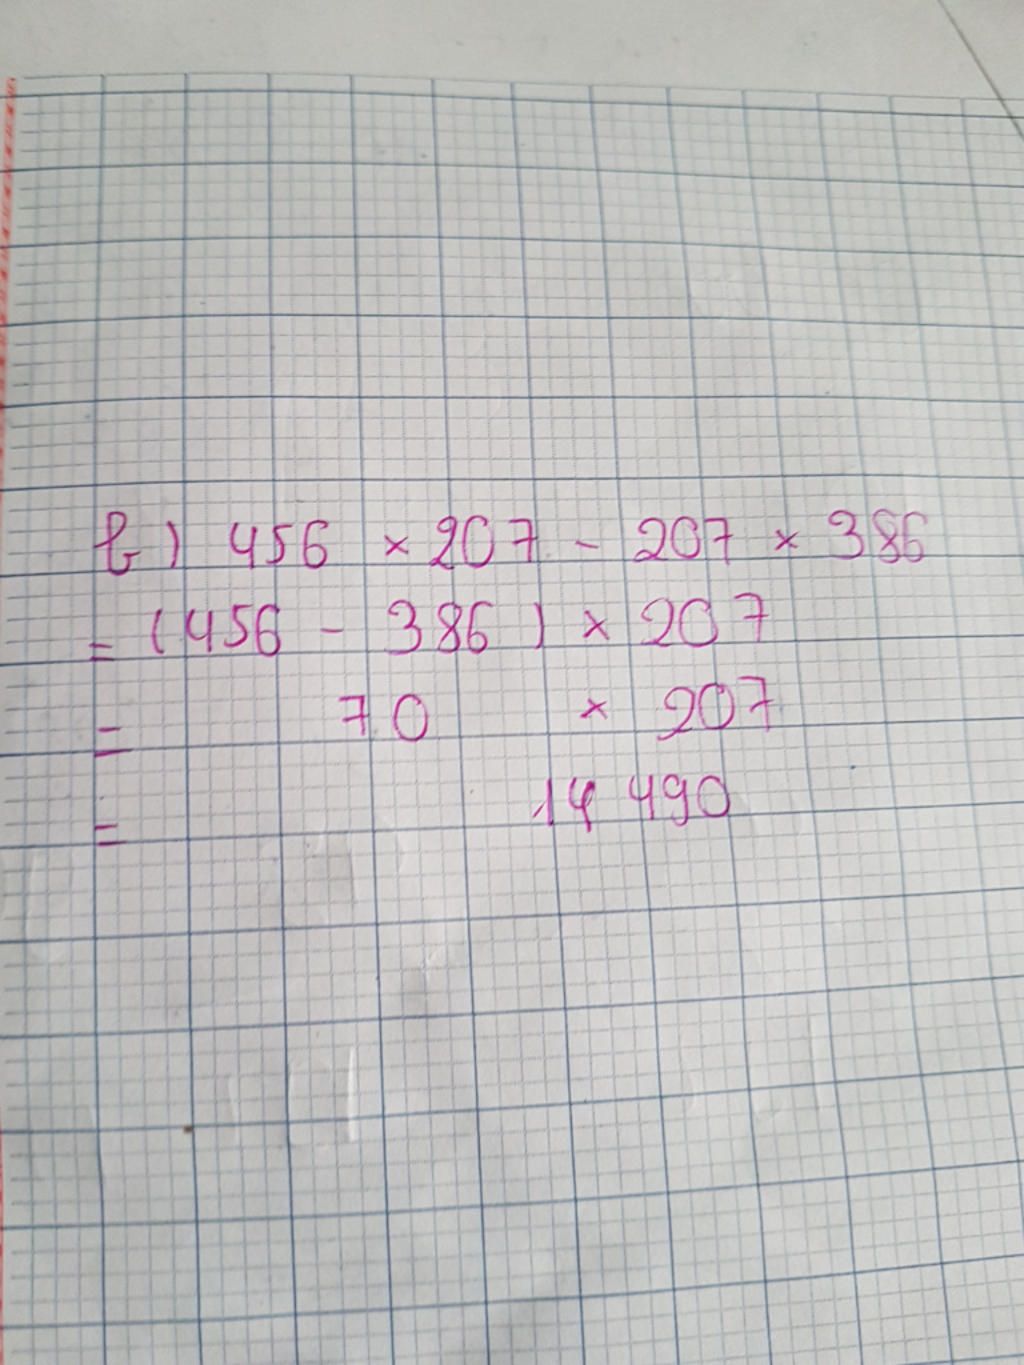 b) 456 × 207 - 207 × 386
= (456 - 386) × 207
= 70 × 207
= 14 490